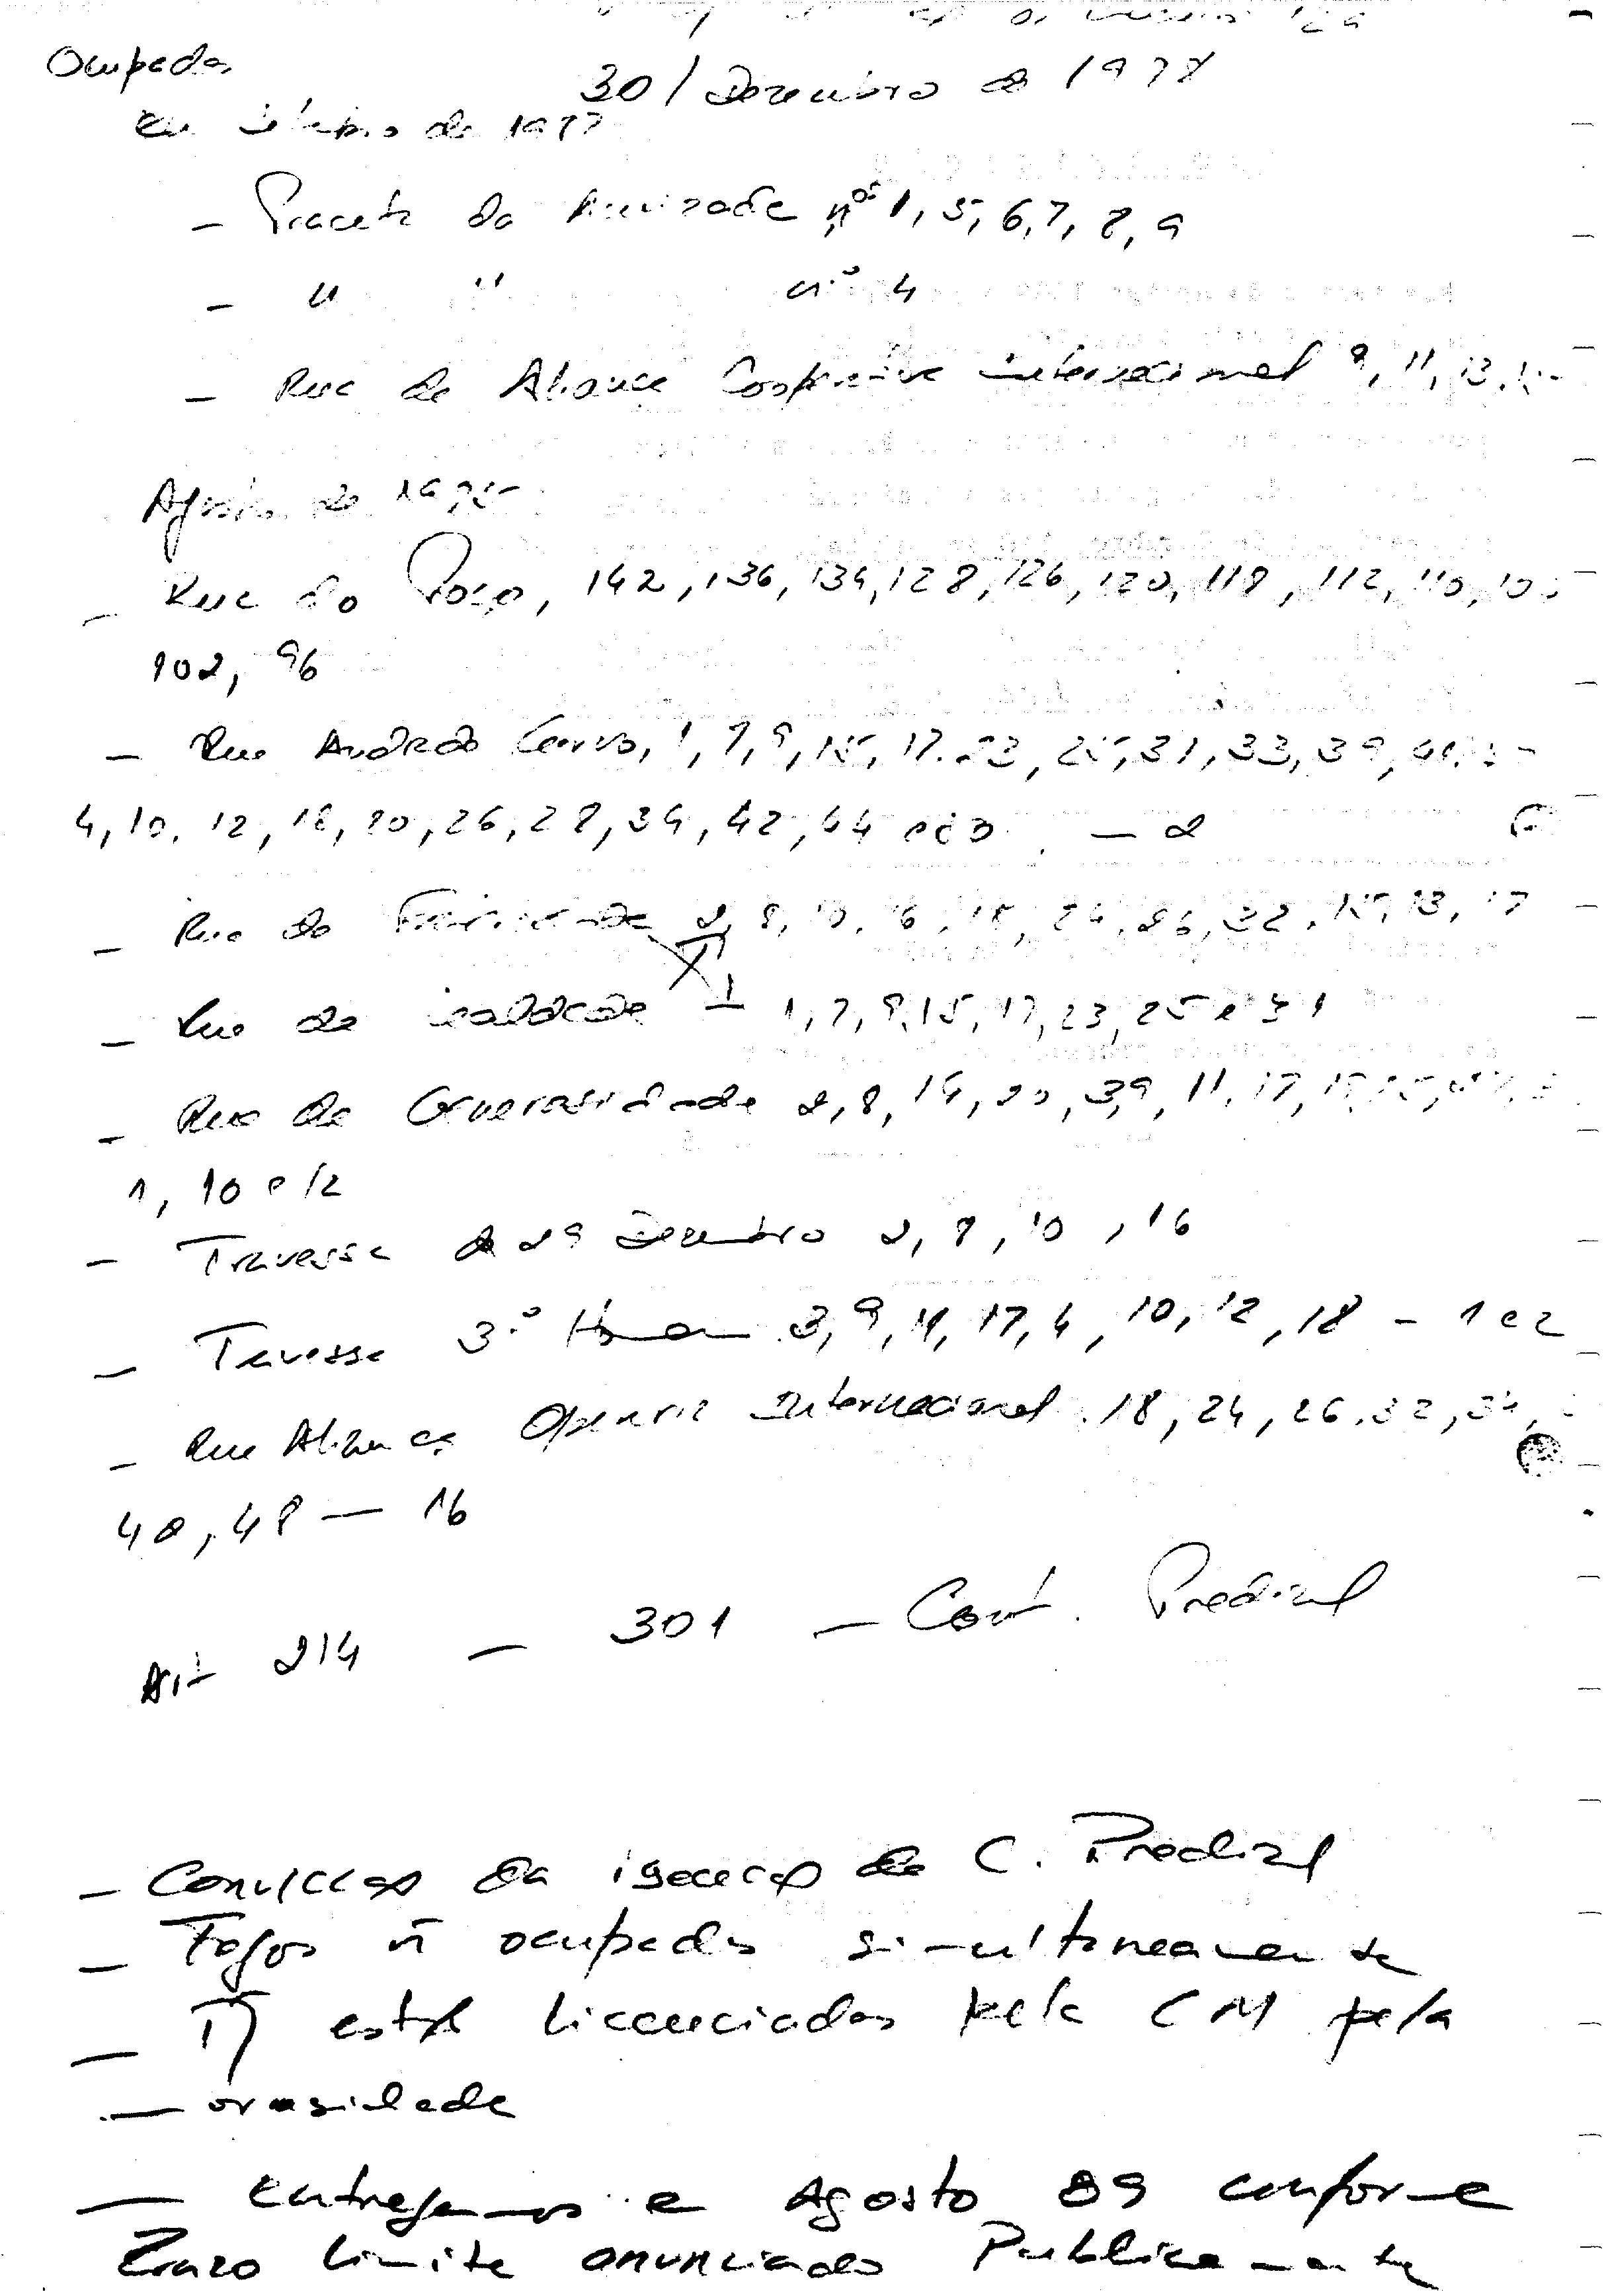 Ocupados
30/Dezembro de 1978
Em de 1977
- Praceta da Amizade nºs 1, 5, 6, 7, 8, 9
- " " nº 4
- Rua da Aliança Cooperativa internacional 9, 11, 13,
Agosto de 1975
- Rua do Poço, 142, 136, 134, 128, 126, 120, 118, 112, 110, 10
102, 96
- Rua Andrade Corvo, 1, 7, 9, 15, 17. 23, 25, 31, 33, 39, 41,
4, 10, 12, 18, 20, 26, 28, 34, 42, 44 e - 2
- Rua da 2, 8, 10, 16, 18, 24, 26, 32, 15, 13, 17
- Rua da Lealdade - 1, 7, 9, 15, 17, 23, 25 e 31
- Rua da Generosidade 2, 8, 14, 20, 3, 9, 11, 17, 19, 25,
1, 10 e 12
- Travessa de 29 Dezembro 2, 8, 10, 16
- Travessa 3º Homem 3, 9, 11, 17, 4, 10, 12, 18 - 1 e 2
- Rua Aliança Operaria Internacional 18, 24, 26, 32, 34,
40, 48 - 16
Art 214 - 301 - Cont. Predial
- Convicção da iseção de C. Predial
- Fogos ñ ocupados simultaneamente
- ñ estão licenciados pela CM pela
-
- entregamos e Agosto 89 conforme
Prazo limite anunciado Publicamente